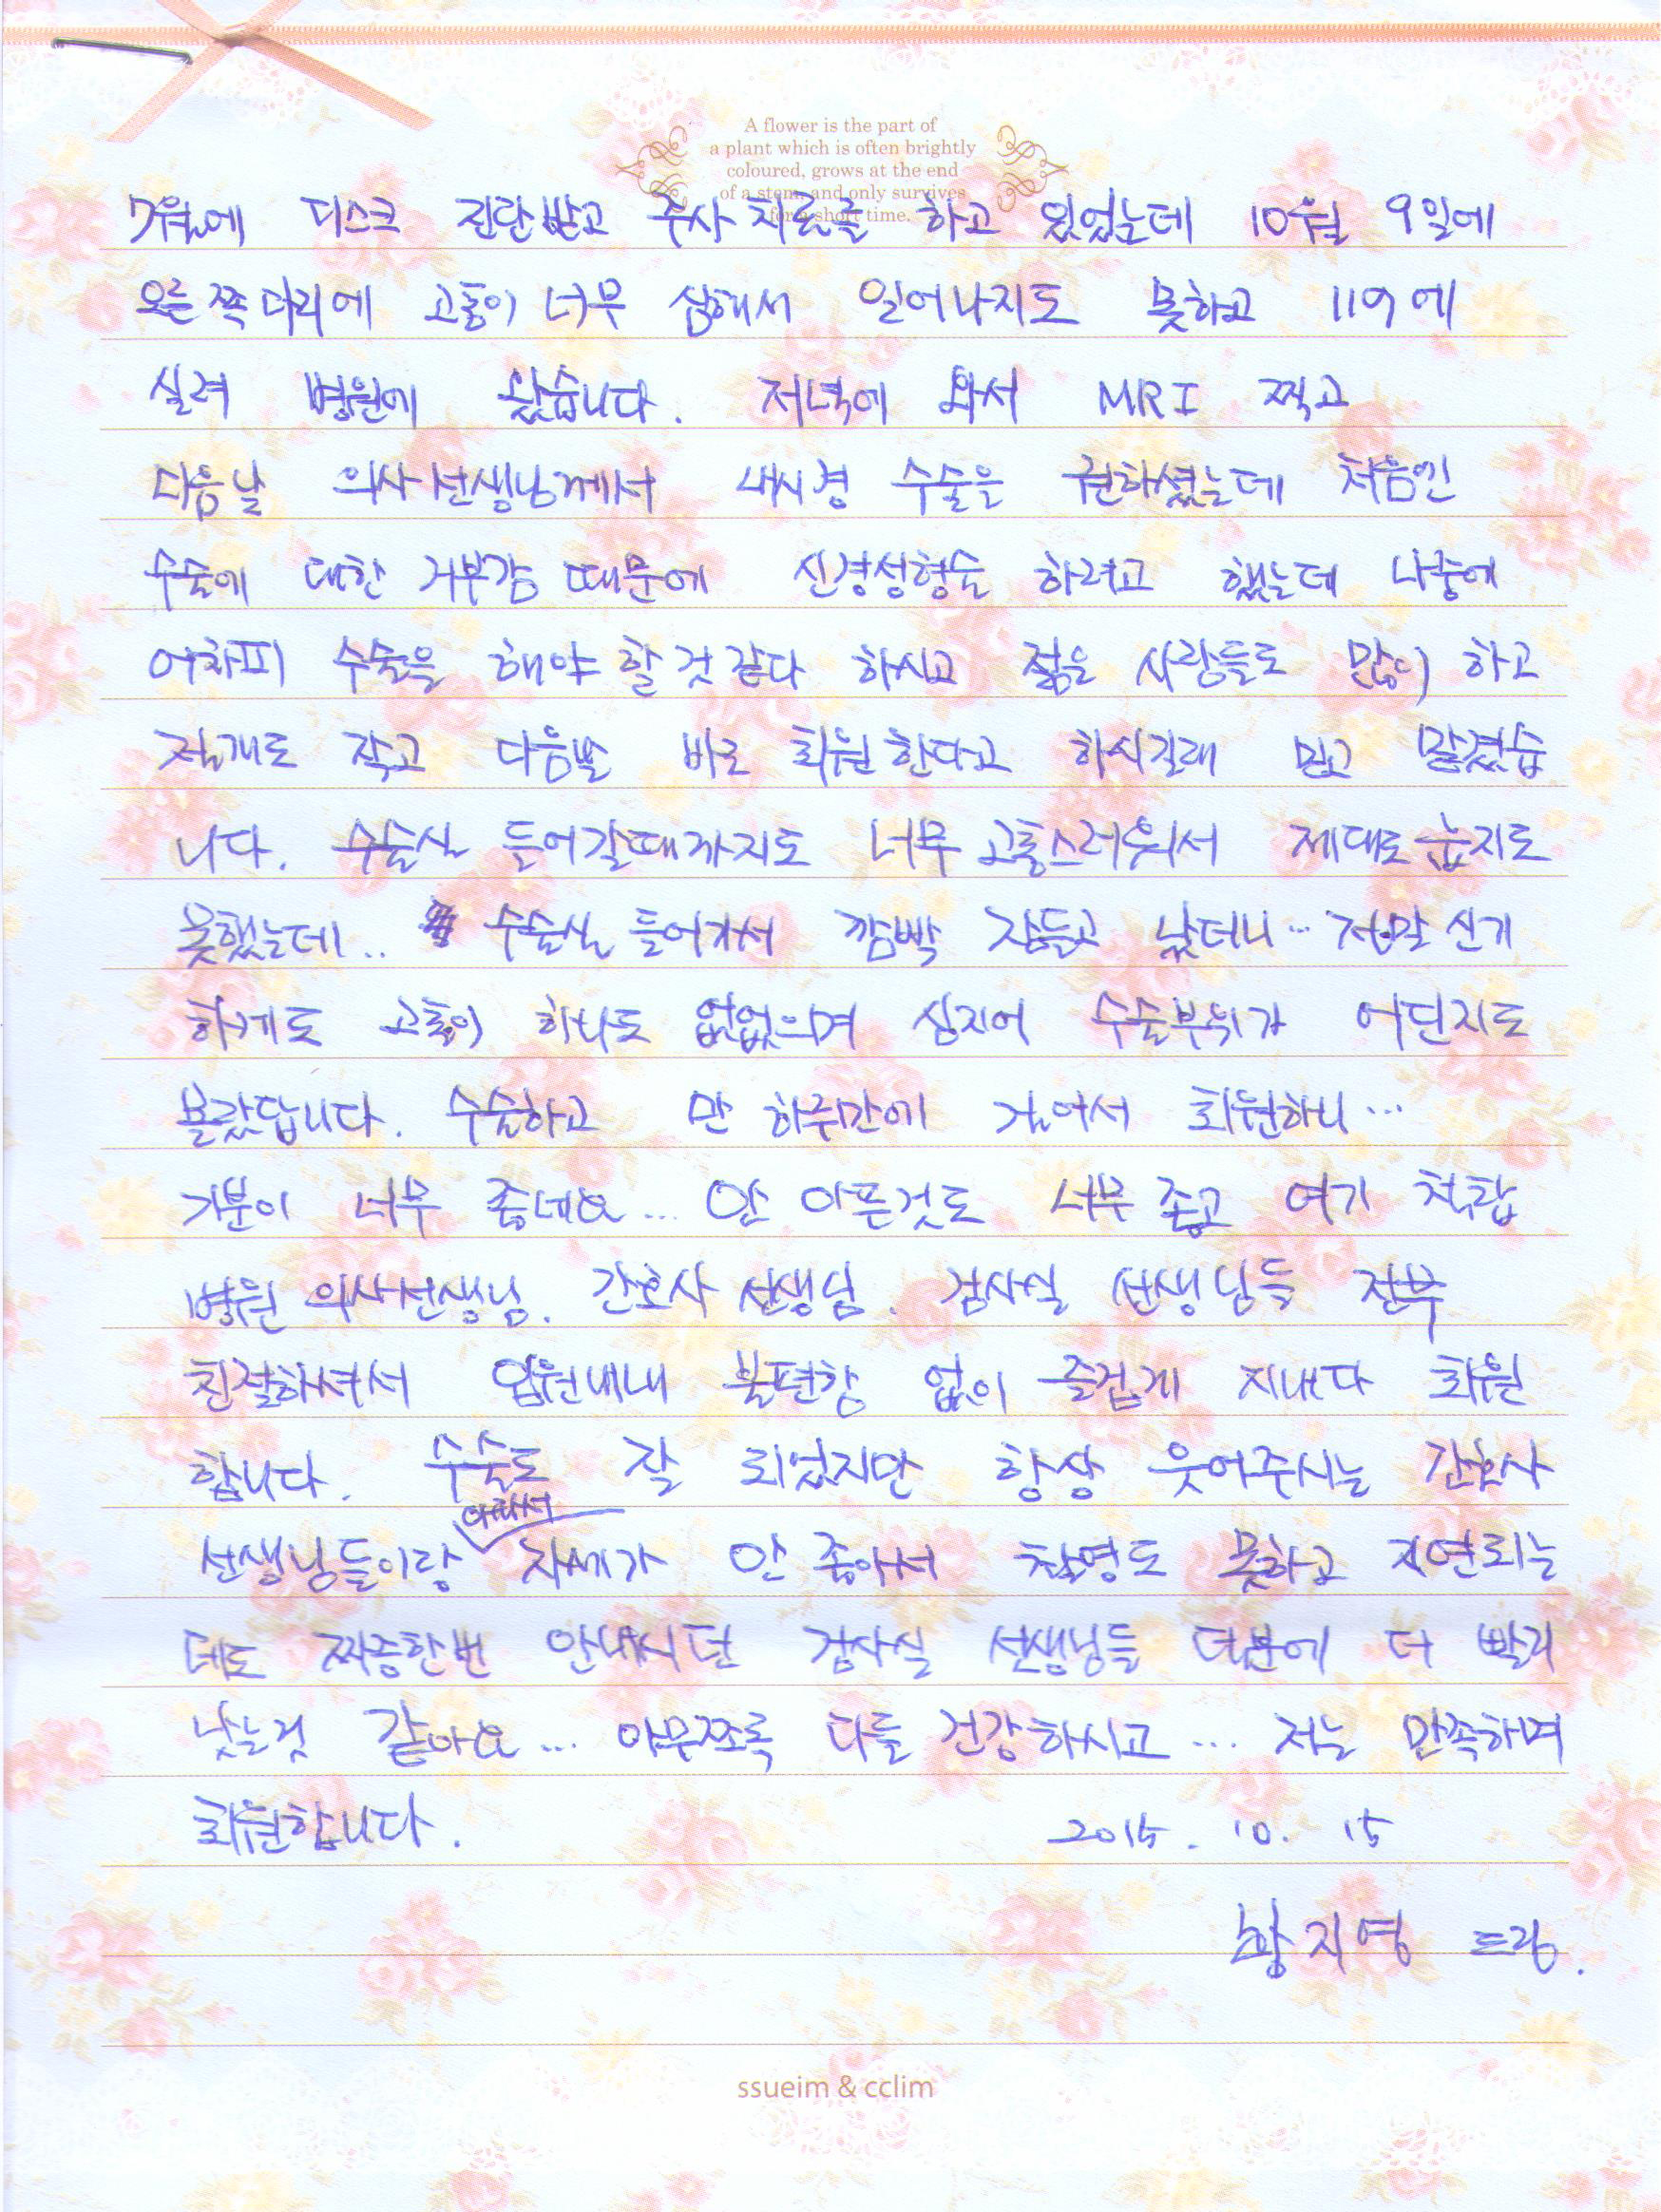 A flower is the part of
a plant which is often brightly
coloured, grows at the end
of a stem, and only survives
for a short time.
7월에 디스크 진단받고 주사치료를 하고 있었는데 10월 9일에
오른쪽다리에 고통이 너무 심해서 일어나지도 못하고 119에
실려 병원에 왔습니다. 저녁에 와서 MRI 찍고
다음날 의사선생님께서 내시경 수술을 권하셨는데 처음인
수술에 대한 거부감 때문에 신경성형술 하려고 했는데 나중에
어차피 수술을 해야 할것같다 하시고 젊은 사람들도 많이 하고
절개도 작고 다음날 바로 퇴원한다고 하시길래 믿고 맡겼습
니다. 수술실 들어갈때까지도 너무 고통스러워서 제대로 눕지도
못했는데.. 수술실 들어가서 깜빡 잠들고 났더니… 정말 신기
하게도 고통이 하나도 없었으며 심지어 수술부위가 어딘지도
몰랐답니다. 수술하고 만 하루만에 걸어서 퇴원하니…
기분이 너무 좋네요… 안 아픈것도 너무 좋고 여기 척탑
병원 의사선생님. 간호사 선생님. 검사실 선생님들 전부
친절하셔서 입원내내 불편함 없이 즐겁게 지내다 퇴원
합니다. 수술도 잘 되었지만 항상 웃어주시는 간호사
아파서
선생님들이랑 자세가 안 좋아서 촬영도 못하고 지연되는
데도 짜증한번 안내시던 검사실 선생님들 덕분에 더 빨리
낫는것 같아요… 아무쪼록 다들 건강하시고… 저는 만족하며
퇴원합니다. 2015. 10. 15
황지영 드림.
ssueim & cclim